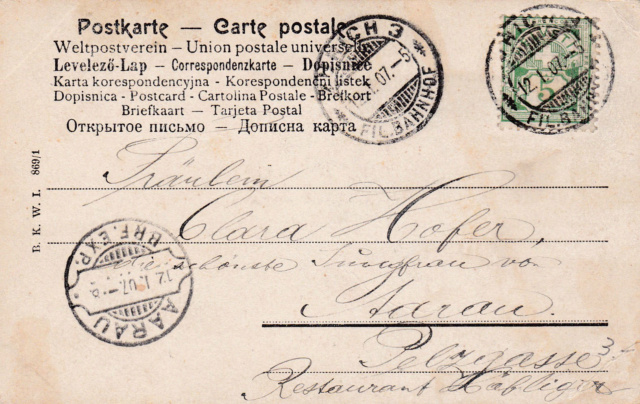 Postkarte — Carte postale
Weltpostverein — Union postale universelle
Levelező-Lap — Correspondenzkarte — Dopisnice
Karta korespondencyjna - Korespondenční listek
Dopisnica - Postcard - Cartolina Postale - Brefkort
Briefkaart — Tarjeta Postal
Открытое письмо — Дописна карта
ZÜRICH 3
12.I.07.-5
FIL. BAHNHOF
5
B. K. W. I. 869/1
Fräulein
Clara Hofer,
die schönste Jungfrau von
Aarau.
Pelzgasse
Restaurant Häfliger
AARAU
BRF. EXP.
12.I.07.